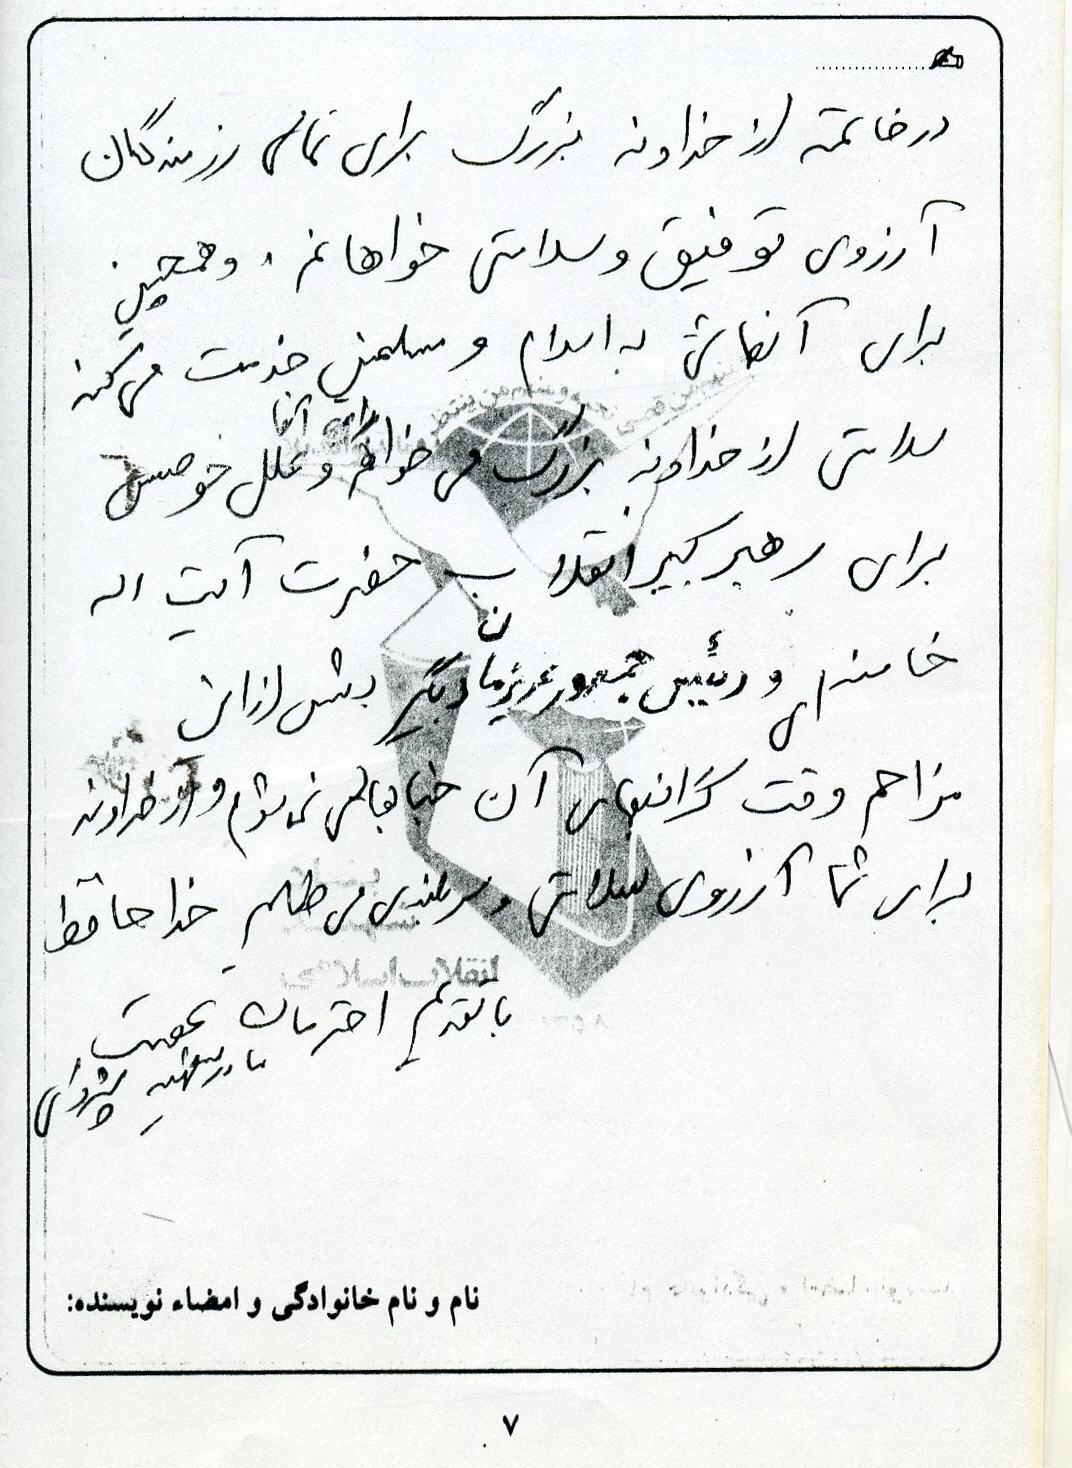 در خاتمه از خداوند بزرگ برای تمامی رزمندگان
آرزوی توفیق و سلامتی خواهانم، و همچنین
برای آنهائی به اسلام و مسلمین خدمت می‌کنند
برای آنها
سلامتی از خداوند بزرگ می‌خواهم و علل خصوص
برای رهبر کبیر انقلاب حضرت آیت اله
خامنه‌ای و رئیس جمهور عزیزمان دیگر بیش از این
مزاحم وقت گرانبهای آن جنابعالی نمی‌شوم و از خداوند
برای شما آرزوی سلامتی و سربلندی می‌طلبم خدا حافظ
با تقدیم احترمات
مادر شهید
نام و نام خانوادگی و امضاء نویسنده:
۷